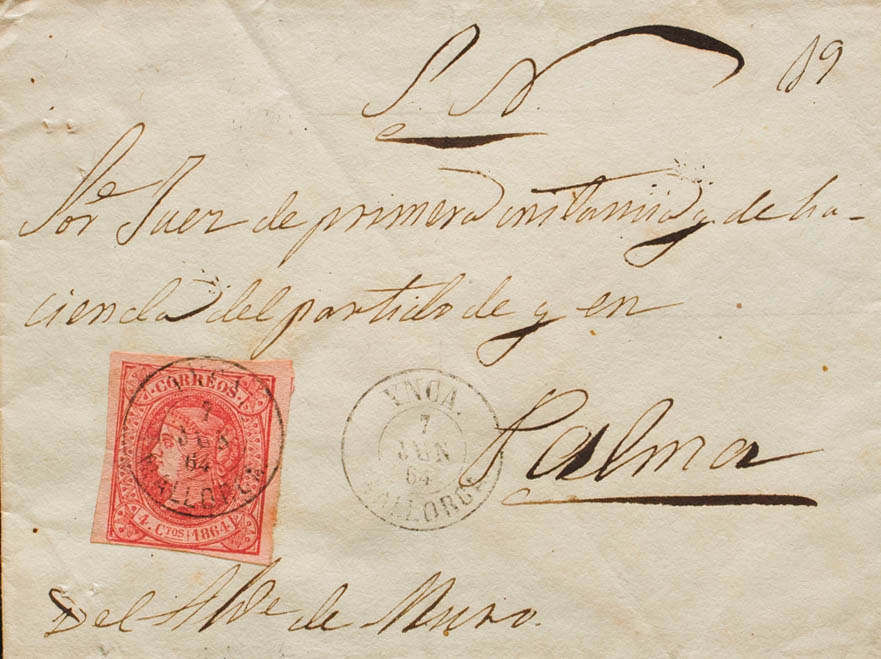 S. N.
19
Sor. Juez de primera instancia y de ha-
cienda del partido de y en
Palma
CORREOS.
7
JUN
64
MALLORCA
4. Ctos. 1864.
YNCA.
7
JUN
64
MALLORCA
Del Alde de Muro.